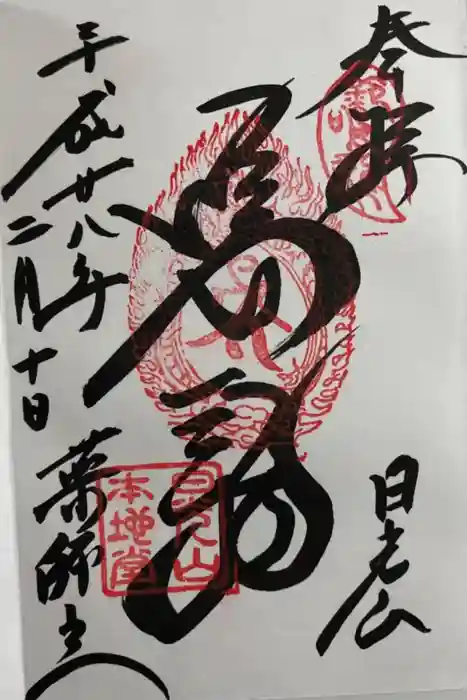 奉拝
日光山
鳴龍
日光山
本地堂
平成廿八年
二月十日
薬師堂